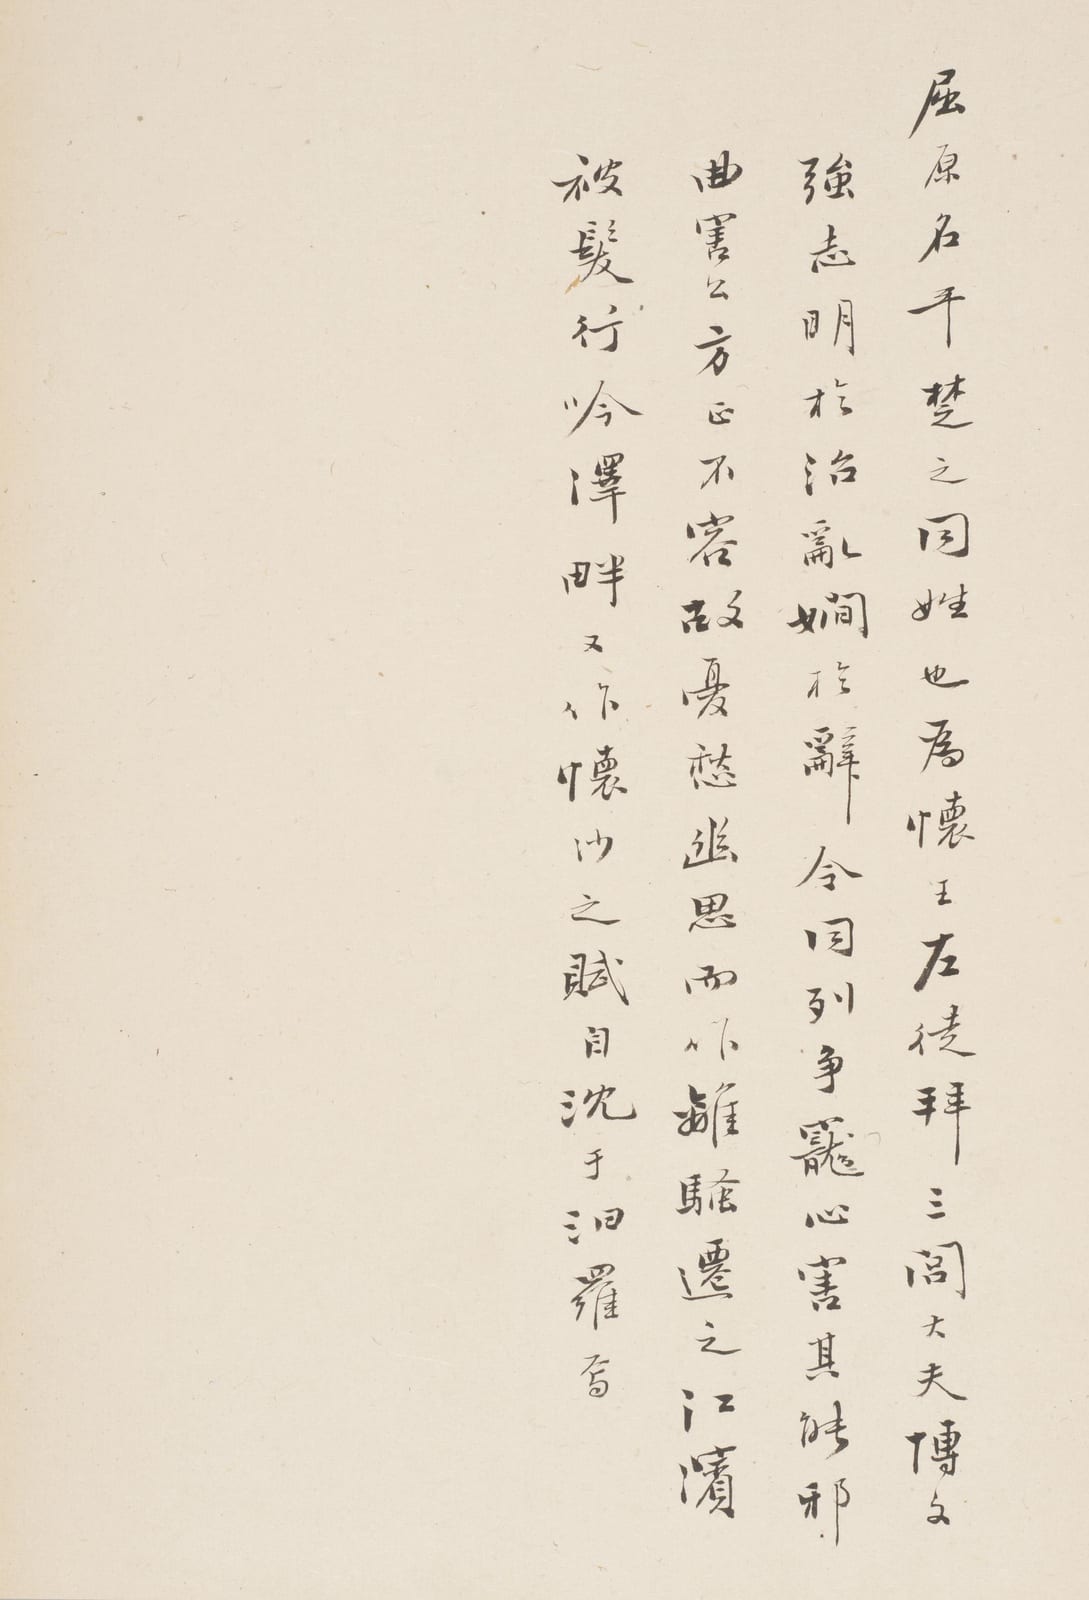 屈原名平楚之同姓也為懷王左徒拜三閭大夫博文
強志明於治亂嫺於辭令同列爭寵心害其能邪
曲害公方正不容故憂愁幽思而作離騷遷之江濱
被髮行吟澤畔又作懷沙之賦自沈于汨羅焉